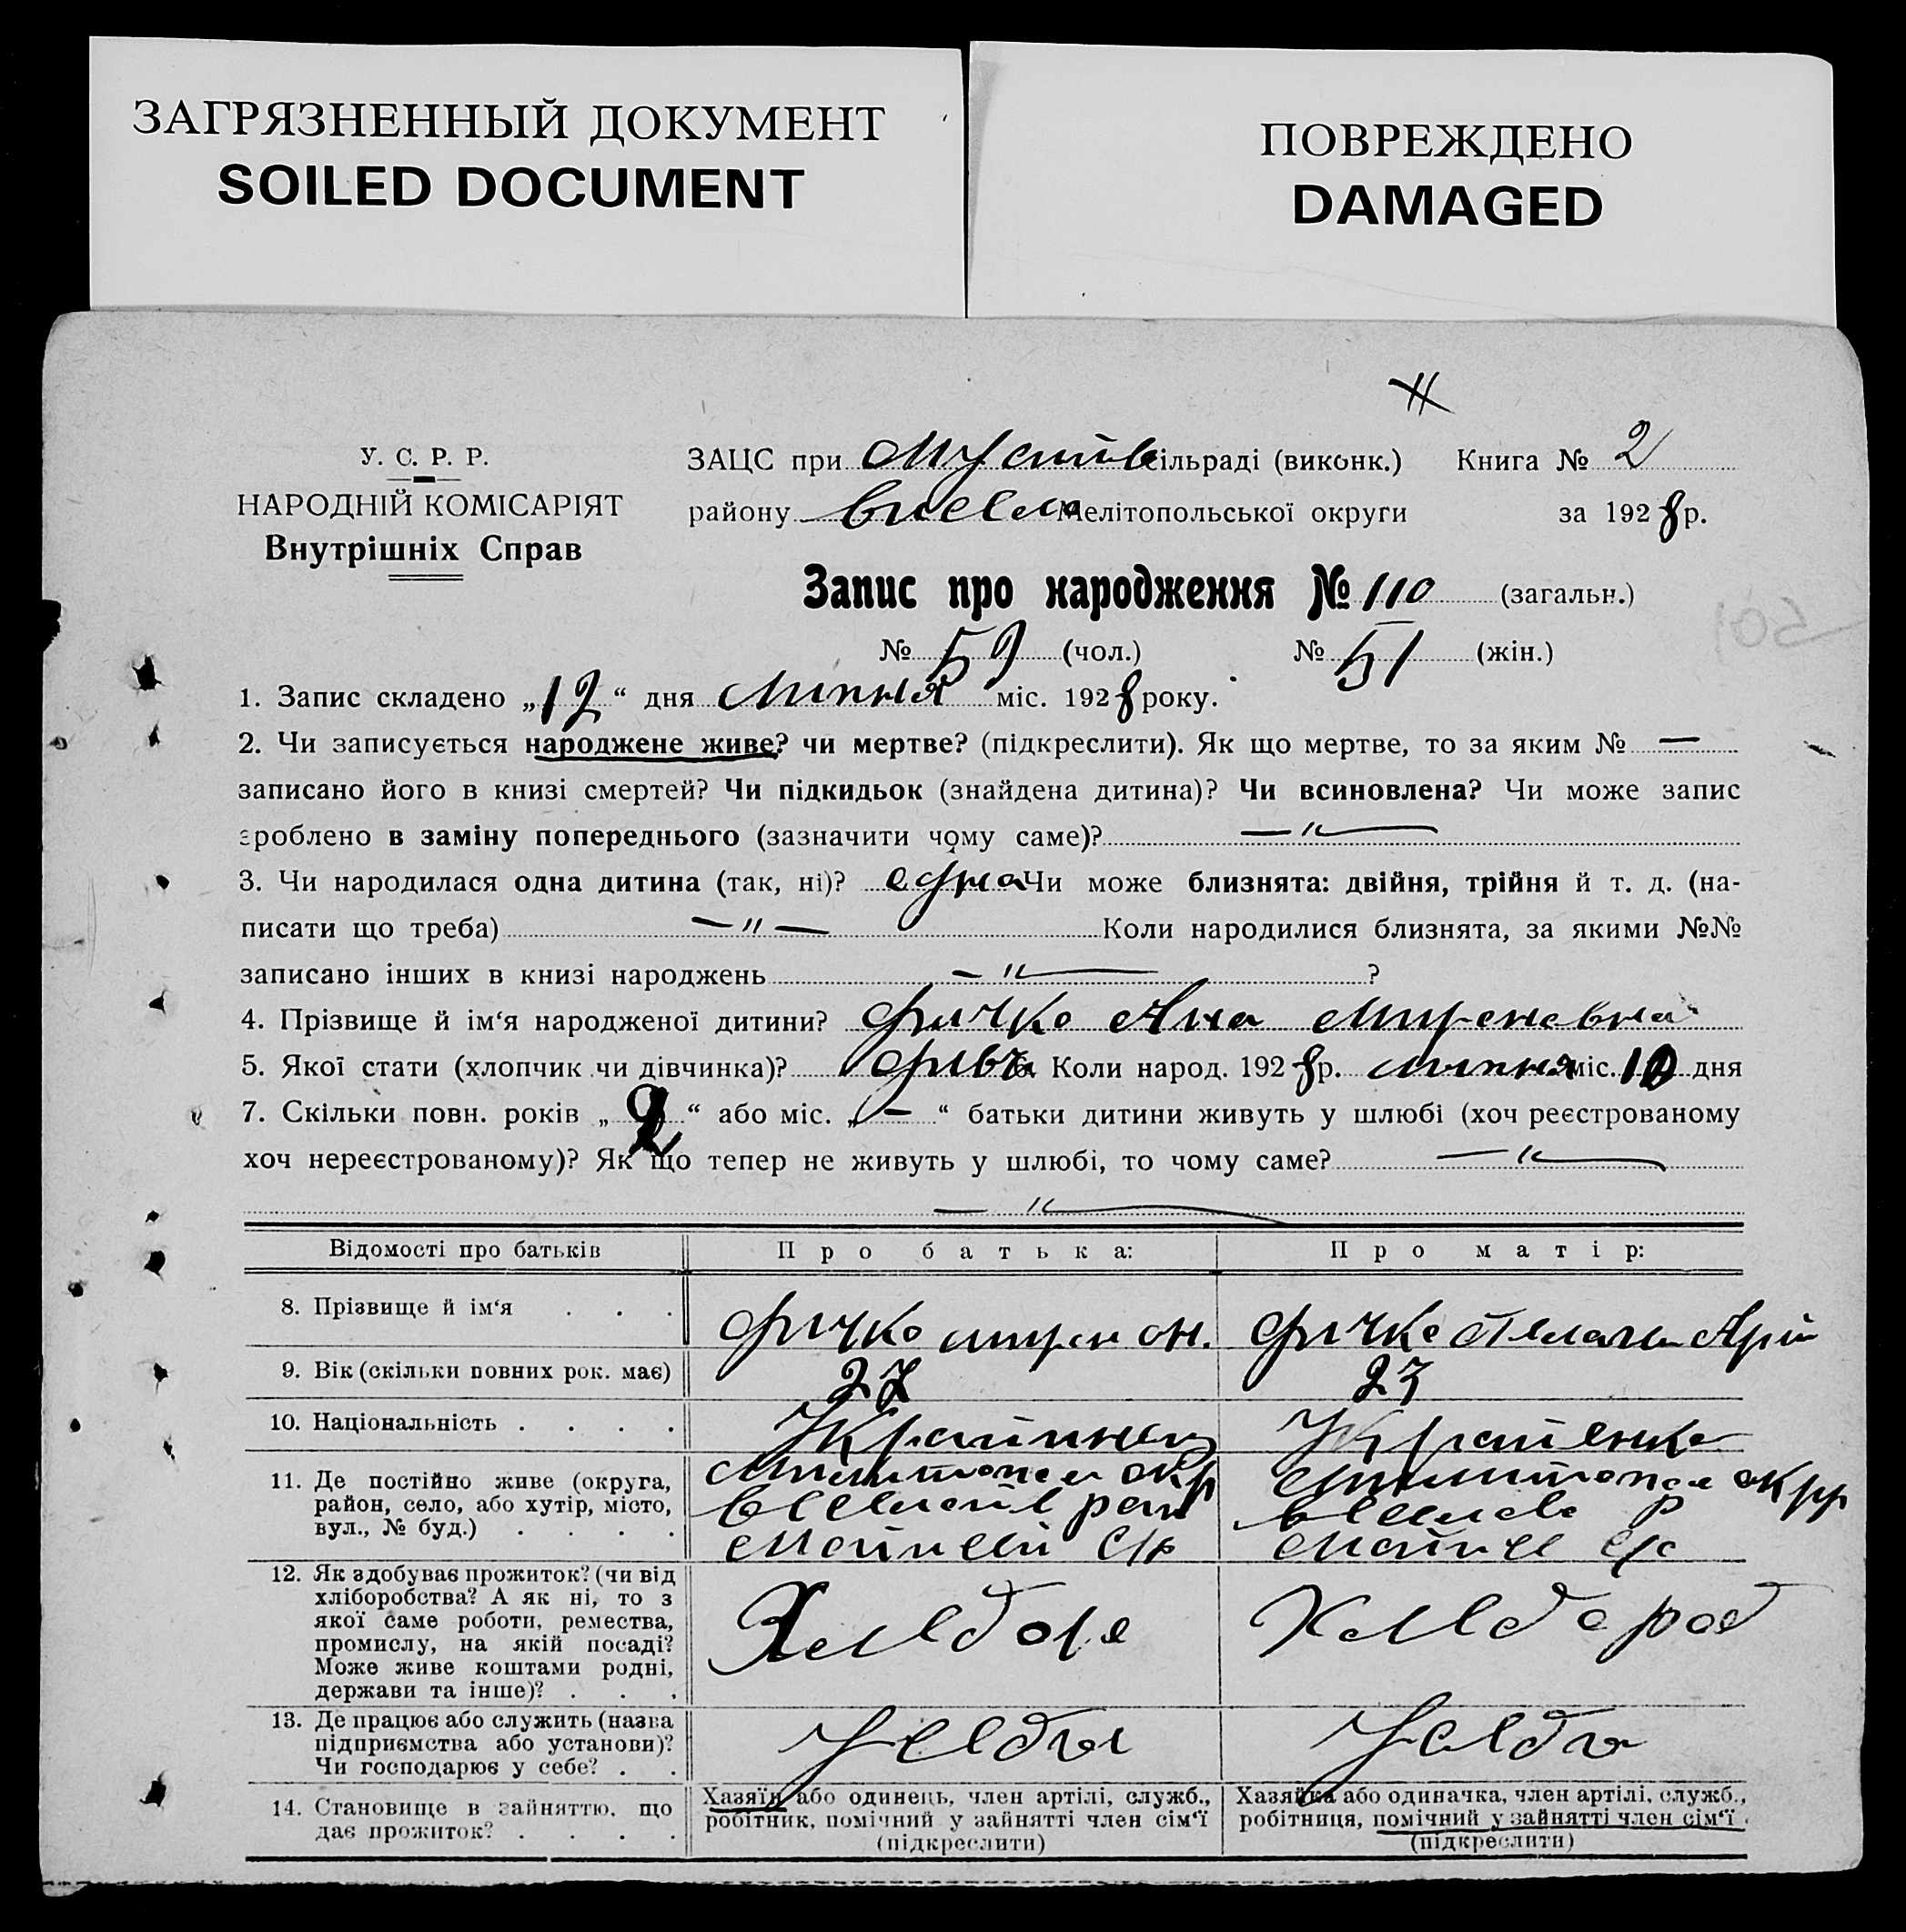 ЗАГРЯЗНЕННЫЙ ДОКУМЕНТ
SOILED DOCUMENT
ПОВРЕЖДЕНО
DAMAGED
У. С. Р. Р.
НАРОДНІЙ КОМІСАРІЯТ
Внутрішніх Справ
ЗАЦС при сільраді (виконк.) Книга № 2
району Мелітопольської округи за 1928 р.
Запис про народження № 110 (загальн.)
№ 59 (чол.) № 51 (жін.)
1. Запис складено „12“ дня липня міс. 1928 року.
2. Чи записується народжене живе? чи мертве? (підкреслити). Як що мертве, то за яким № —
записано його в книзі смертей? Чи підкидьок (знайдена дитина)? Чи всиновлена? Чи може запис
зроблено в заміну попереднього (зазначити чому саме)? — „ —
3. Чи народилася одна дитина (так, ні)? одна Чи може близнята: двійня, трійня й т. д. (на-
писати що треба) — „ — Коли народилися близнята, за якими №№
записано інших в книзі народжень — „ — ?
4. Прізвище й ім‘я народженої дитини? Фичко Ана Миреновна
5. Якої стати (хлопчик чи дівчинка)? Коли народ. 1928 р. липня міс. 10 дня
7. Скільки повн. років „2“ або міс. „—“ батьки дитини живуть у шлюбі (хоч реєстрованому
хоч нереєстрованому)? Як що тепер не живуть у шлюбі, то чому саме? — „ —
— „ —
Відомості про батьків Про батька: Про матір:
8. Прізвище й ім‘я . . . Фичко Фичко
9. Вік (скільки повних рок. має) 27 23
10. Національність . . . . Українец Українка
11. Де постійно живе (округа,
район, село, або хутір, місто,
вул., № буд.) . . . .
12. Як здобуває прожиток? (чи від
хліборобства? А як ні, то з
якої саме роботи, ремества,
промислу, на якій посаді?
Може живе коштами родні,
держави та інше)? . . .
13. Де працює або служить (назва
підприємства або установи)?
Чи господарює у себе? . .
У себя У себя
14. Становище в зайняттю, що
дає прожиток? . . . .
Хазяїн або одинець, член артілі, служб.,
робітник, помічний у зайнятті член сім‘ї
(підкреслити)
Хазяйка або одиначка, член артілі, служб.,
робітниця, помічний у зайнятті член сім‘ї.
(підкреслити)